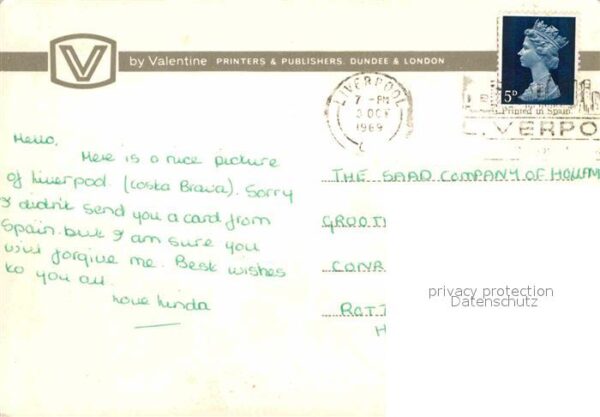 V
by Valentine PRINTERS & PUBLISHERS. DUNDEE & LONDON
5D
Printed in Spain
LIVERPOOL
7 - PM
3 OCT
1969
L
LIVERPO
Hello,
Here is a nice picture
of Liverpool (Costa Brava). Sorry
I didn't send you a card from
Spain. but I am sure you
will forgive me. Best wishes
to you all.
love Linda
THE SAAD COMPANY OF HOLLAN
GROOT
CONR
ROTT
H
privacy protection
Datenschutz